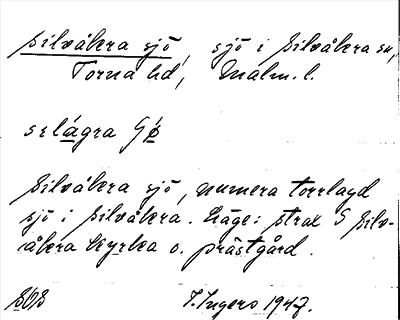 Silvåkra sjö, sjö i Silvåkra sn,
Torna hd, Malm. l.
sɛlågra ʃø
Silvåkra sjö, numera torrlagd
sjö i Silvåkra. Läge: strax S Silv-
åkra kyrka o. prästgård.
I. Ingers 1947.